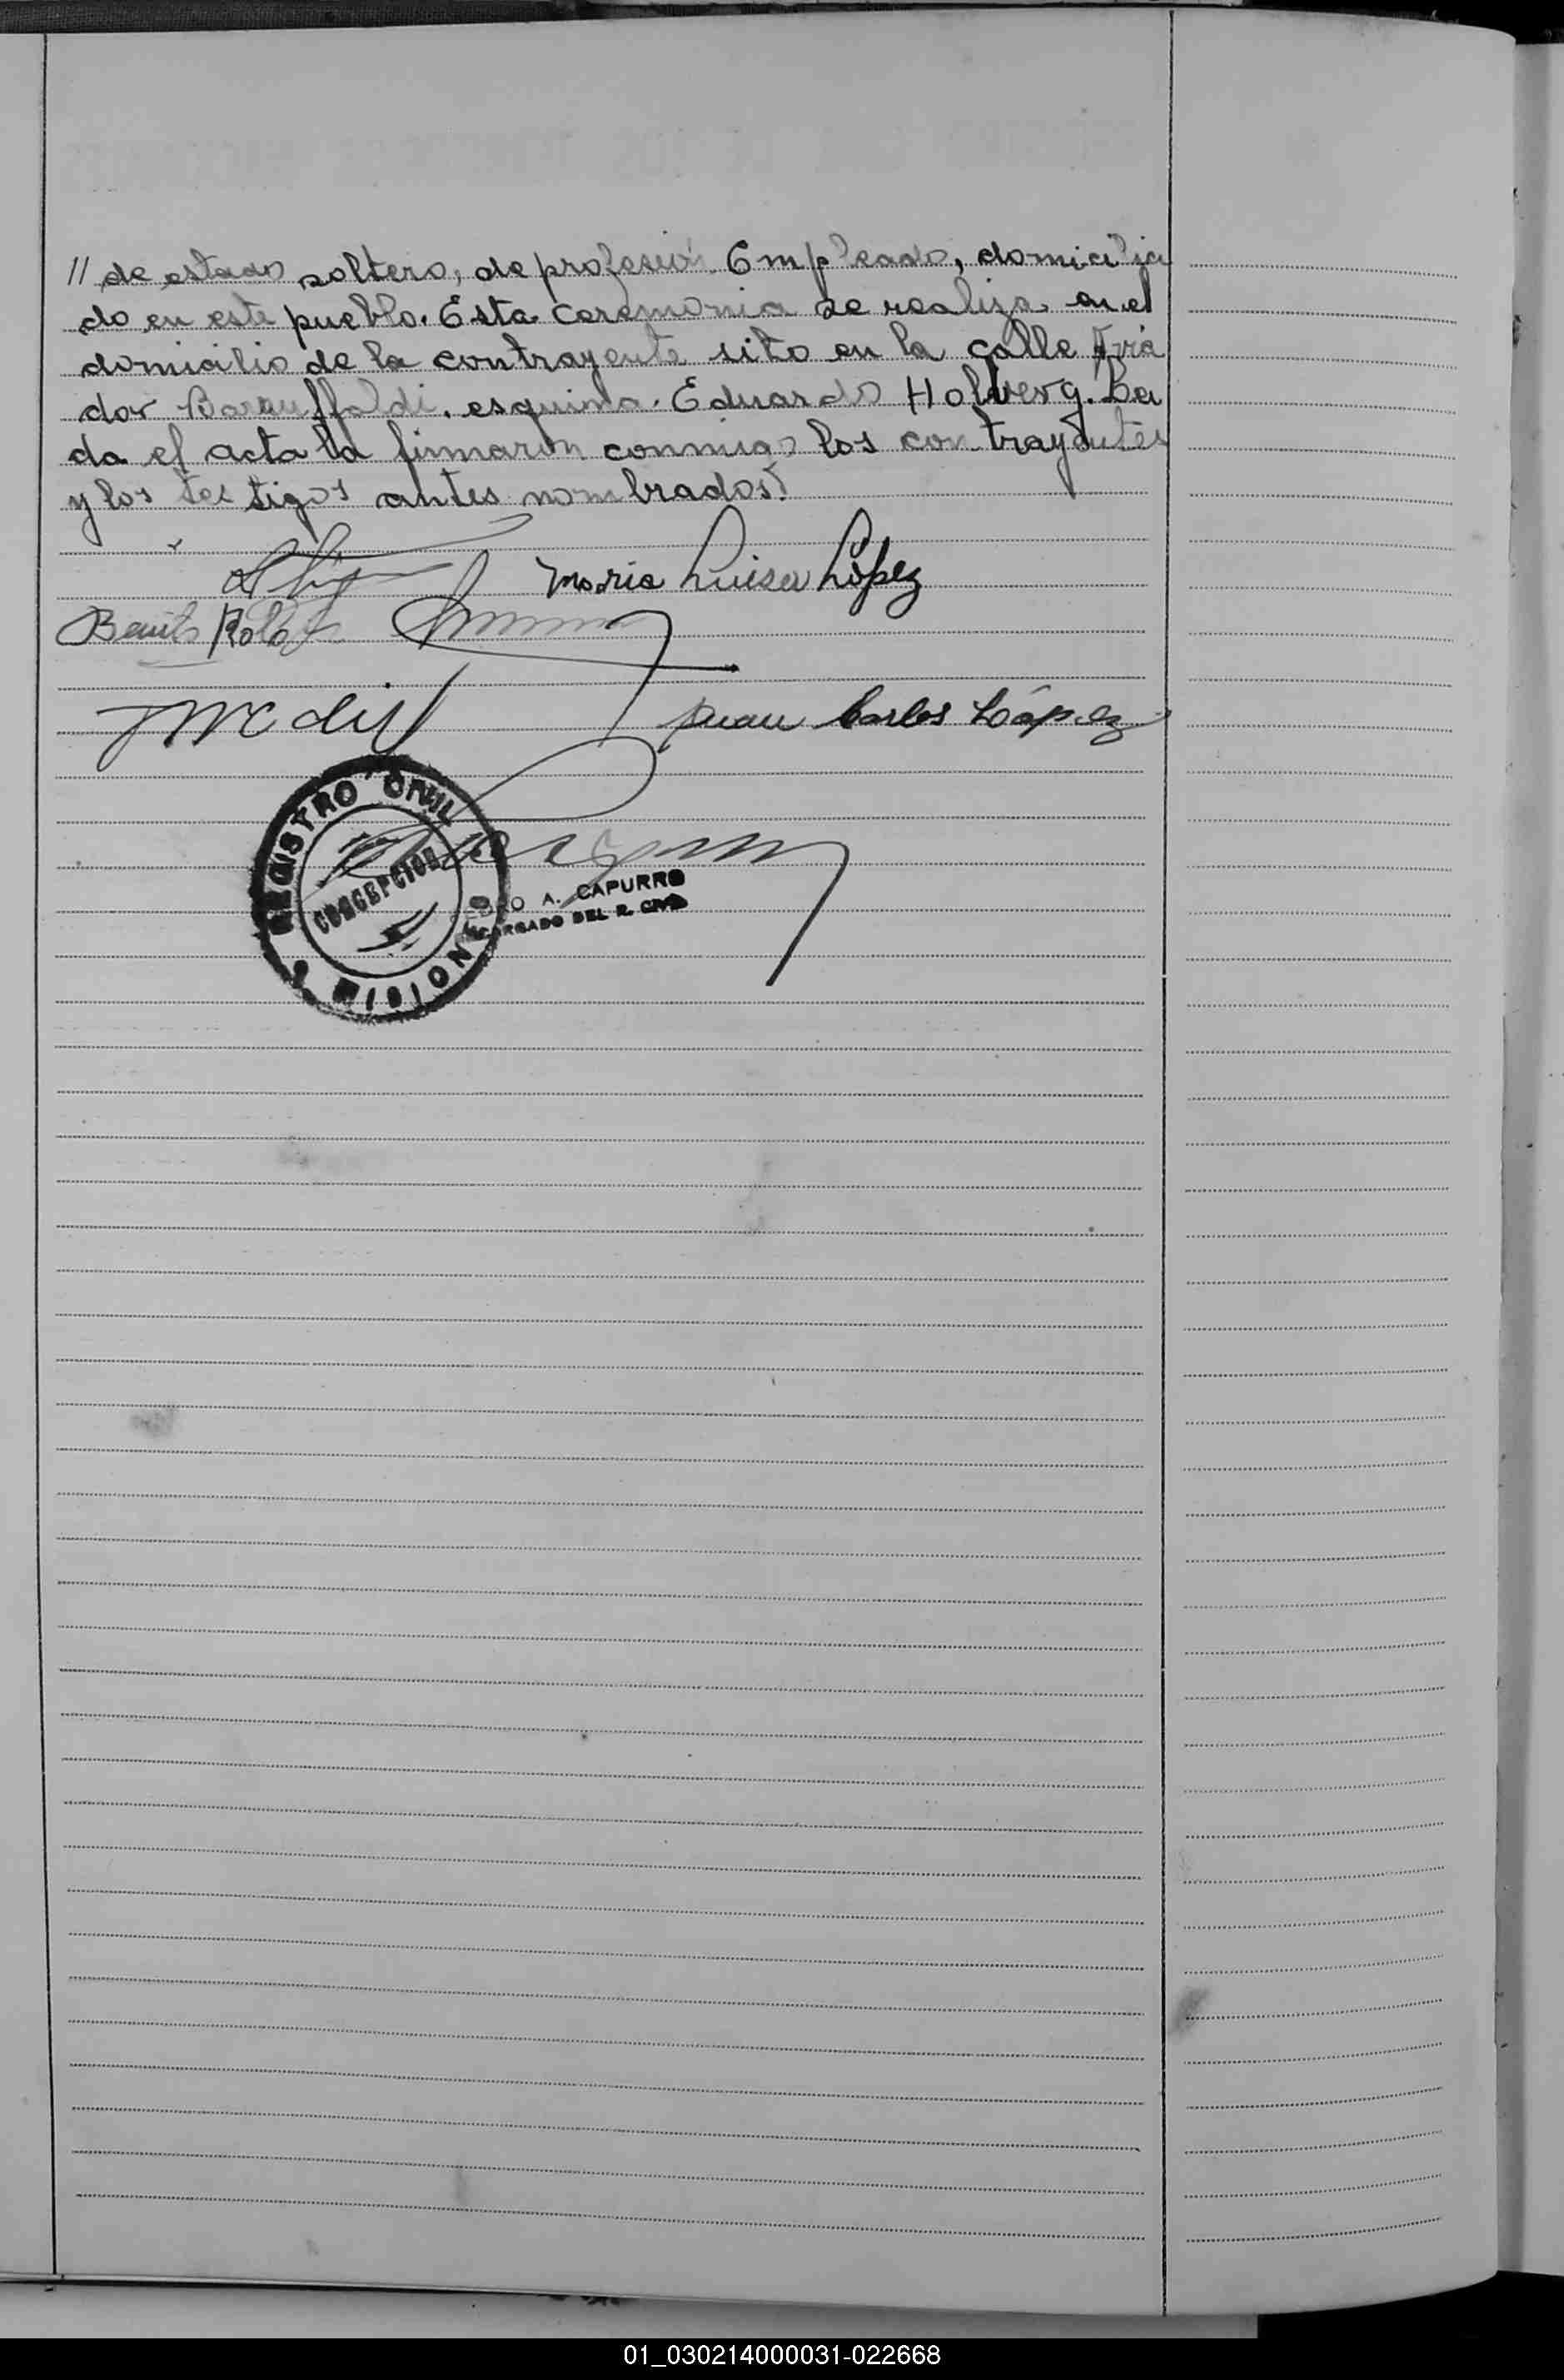 // de estado soltero, de profesión Empleado, domicilia
do en este pueblo. Esta ceremonia se realiza en el
domicilio de la contrayente sito en la calle Avia
dor Barauffaldi, esquina. Eduardo Holwerg. Lei
da el acta la firmaron conmigo los contrayentes
y los testigos antes nombrados.
Maria Luisa López
Benito
Juan Carlos López
REGISTRO CIVIL
CONCEPCION
MISIONES
A. CAPURRO
DEL R. CIVIL
01_030214000031-022668